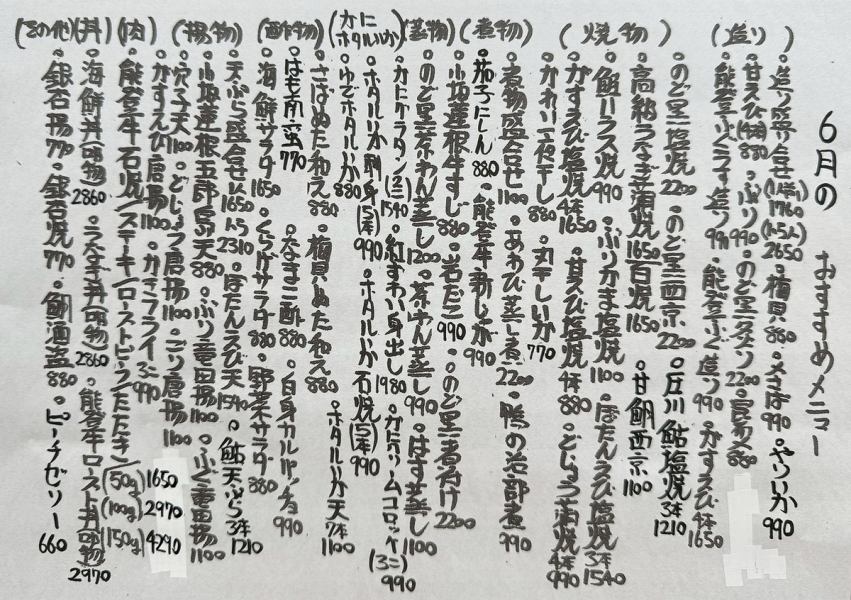 6月の おすすめメニュー
(造り)
・造り盛合せ(1人前)1760 (4、5人)2650 ・梅貝880 ・〆さば990 ・やりいか990
・甘えび(4本)880 ・ぶり990 ・のど黒タタソ2200
・能登ふぐうす造り990 ・能登ふぐ造り990 ・がすえび4本1650
(焼物)
・のど黒塩焼2200 ・のど黒西京2200 ・庄川鮎塩焼3本1210
・高納うなぎ蒲焼1650 白焼1650 ・甘鯛西京1100
・鮭ハラス焼990 ・ぶりかま塩焼1100 ・ぼたんえび塩焼3本1540
・がすえび塩焼4本1650 ・甘えび塩焼4本880 ・どじょう蒲焼4本990
・かれい一夜干し880 ・丸干しいか770
(煮物)
・煮物盛合せ1100 ・あわび蒸し煮2200 ・鴨の治部煮990
・茄子にしん880 ・能登牛新じゃが990
・小坂蓮根牛すじ880 ・岩だこ990 ・のど黒煮付け2200
(蒸物)
・のど黒茶わん蒸し1200 ・茶わん蒸し990 ・はす蒸し1100
(かに ホタルいか)
・かにグラタン(ミニ)1540 ・紅ずわい身出し1980 ・かにクリームコロッケ(3コ)990
・ホタルいか刺身(15本)990 ・ホタルいか石焼(15本)990
・ゆでホタルいか880 ・ホタルいか天7本1100
(酢物)
・さばぬた和え880 ・梅貝ぬた和え880
・はも南蛮770 ・なまこ酢880 ・白身カルパッチョ990
・海鮮サラダ1650 ・くらげサラダ880 ・野菜サラダ880
(揚物)
・天ぷら盛合せ1人1650 4、5人2310 ・ぼたんえび天1540 ・鮎天ぷら3本1210
・小坂蓮根五郎島天880 ・ぶり竜田揚1100 ・ふぐ竜田揚1100
・穴子天1100 ・どじょう唐揚1100 ・ごり唐揚1100
・がすえび唐揚1100 ・かきフライ3コ990
(肉)
・能登牛石焼/ステーキ/ローストビーフ/たたき/(50g)1650 (100g)2970 (150g)4290
(丼)
・海鮮丼(吸物)2860 ・うなぎ丼(吸物)2860 ・能登牛ロースト丼(吸物)2970
(その他)
・銀杏揚770 ・銀杏焼770 ・鯛酒盗880 ・ピーチゼリー660